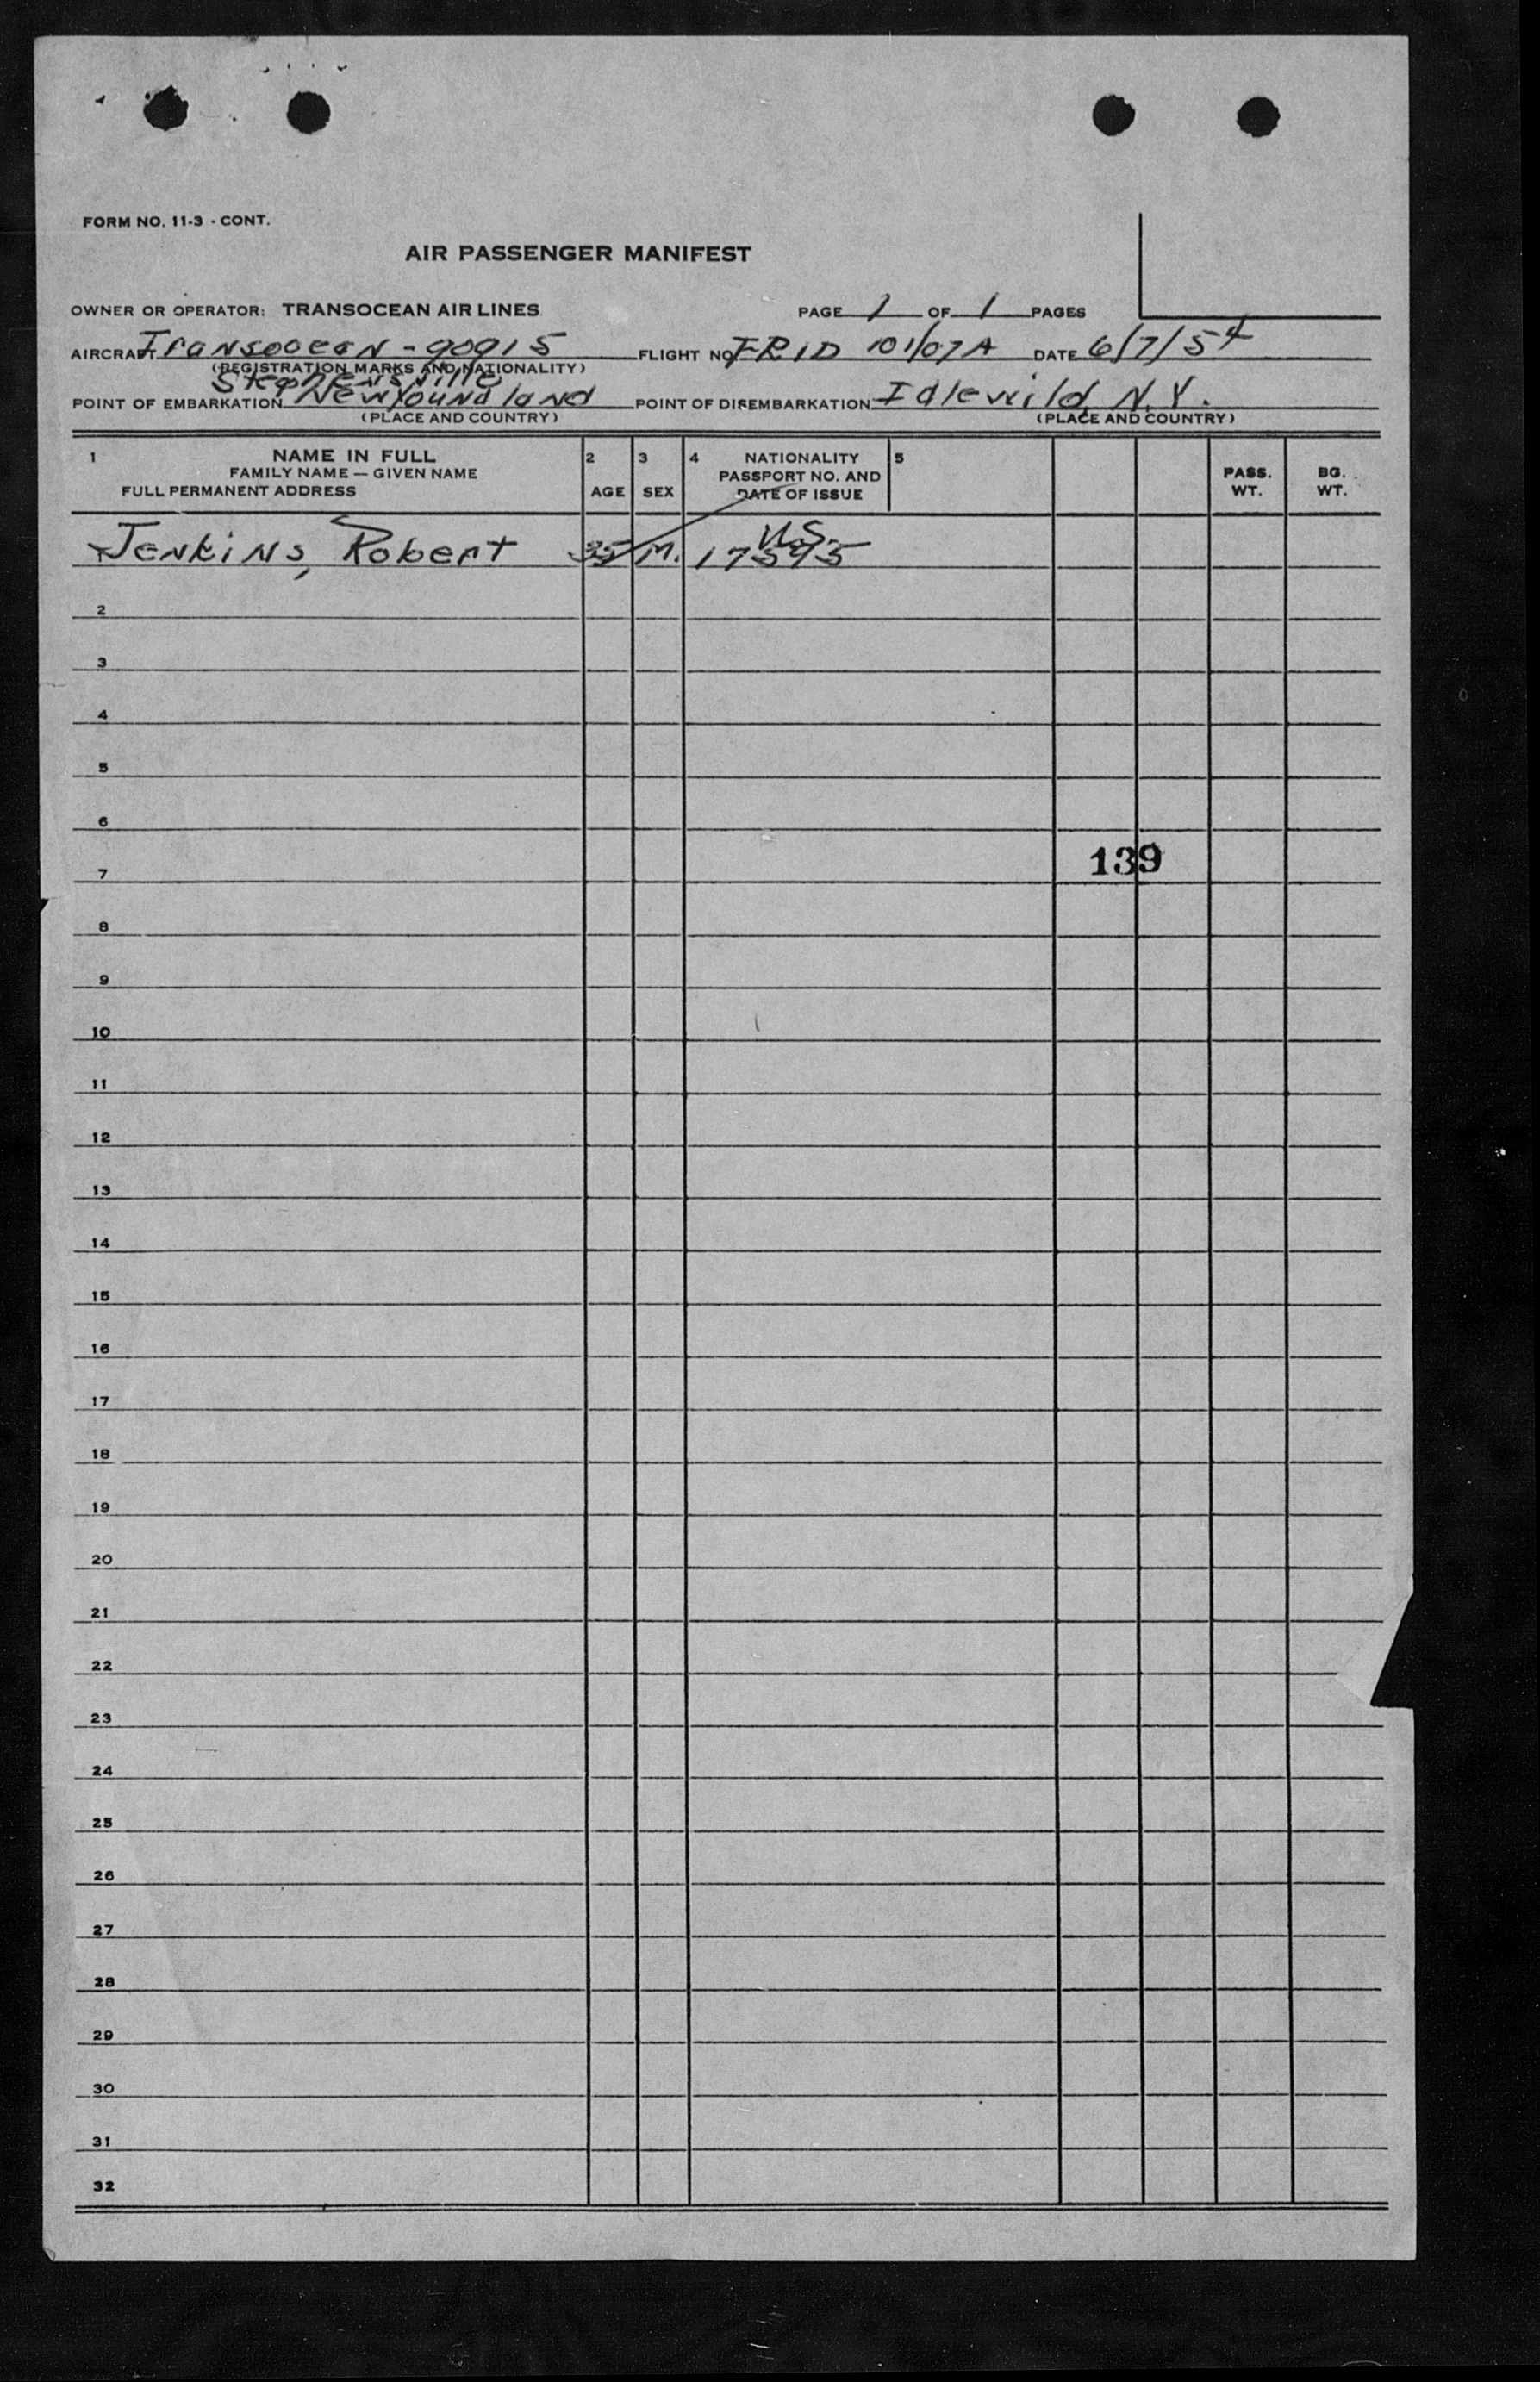 FORM NO. 11-3 - CONT.
AIR PASSENGER MANIFEST
OWNER OR OPERATOR: TRANSOCEAN AIR LINES PAGE 1 OF 1 PAGES
AIRCRAFT Transocean - 90915 FLIGHT NO. DATE 6/7/54
(REGISTRATION MARKS AND NATIONALITY)
Stephensville
POINT OF EMBARKATION Newfoundland POINT OF DISEMBARKATION Idlewild, N.Y.
(PLACE AND COUNTRY) (PLACE AND COUNTRY)
1 NAME IN FULL 2 3 4 NATIONALITY 5
FAMILY NAME — GIVEN NAME PASSPORT NO. AND PASS. BG.
FULL PERMANENT ADDRESS AGE SEX DATE OF ISSUE WT. WT.
U.S.
Jenkins, Robert 35 M. 17595
2
3
4
5
6
139
7
8
9
10
11
12
13
14
15
16
17
18
19
20
21
22
23
24
25
26
27
28
29
30
31
32